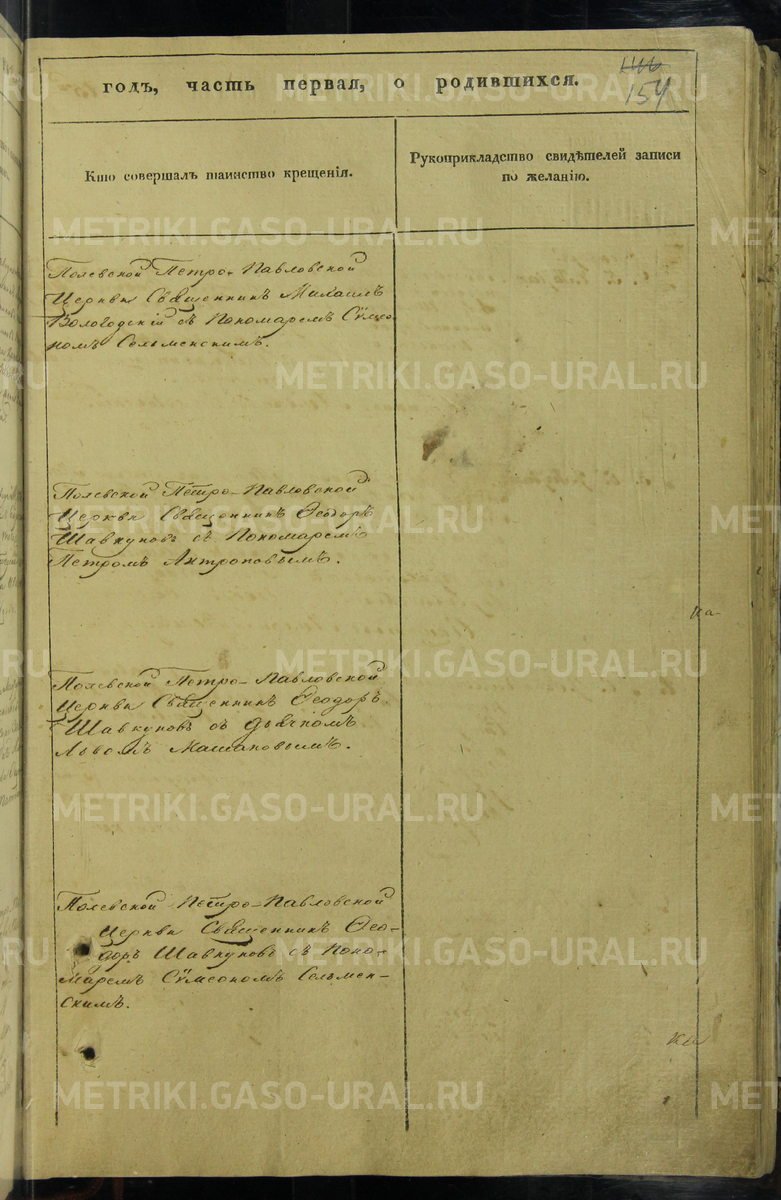 годъ, часть первая, о родившихся.
146
154
Кто совершалъ таинство крещенія.
Рукоприкладство свидѣтелей записи
по желанію.
Полевской Петро-Павловской
Церкви Священникъ Михаилъ
Вологодскій съ Пономаремъ Сѵмео-
номъ Сельменскимъ.
Полевской Петро-Павловской
Церкви Священникъ Ѳеодоръ
Шавкуновъ съ Пономаремъ
Петромъ Антроповымъ.
Полевской Петро-Павловской
Церкви Священникъ Ѳеодоръ
Шавкуновъ съ Дьячкомъ
Львомъ
Полевской Петро-Павловской
Церкви Священникъ Ѳео-
доръ Шавкуновъ съ Поно-
маремъ Сѵмеономъ Сельмен-
скимъ.
METRIKI.GASO-URAL.RU